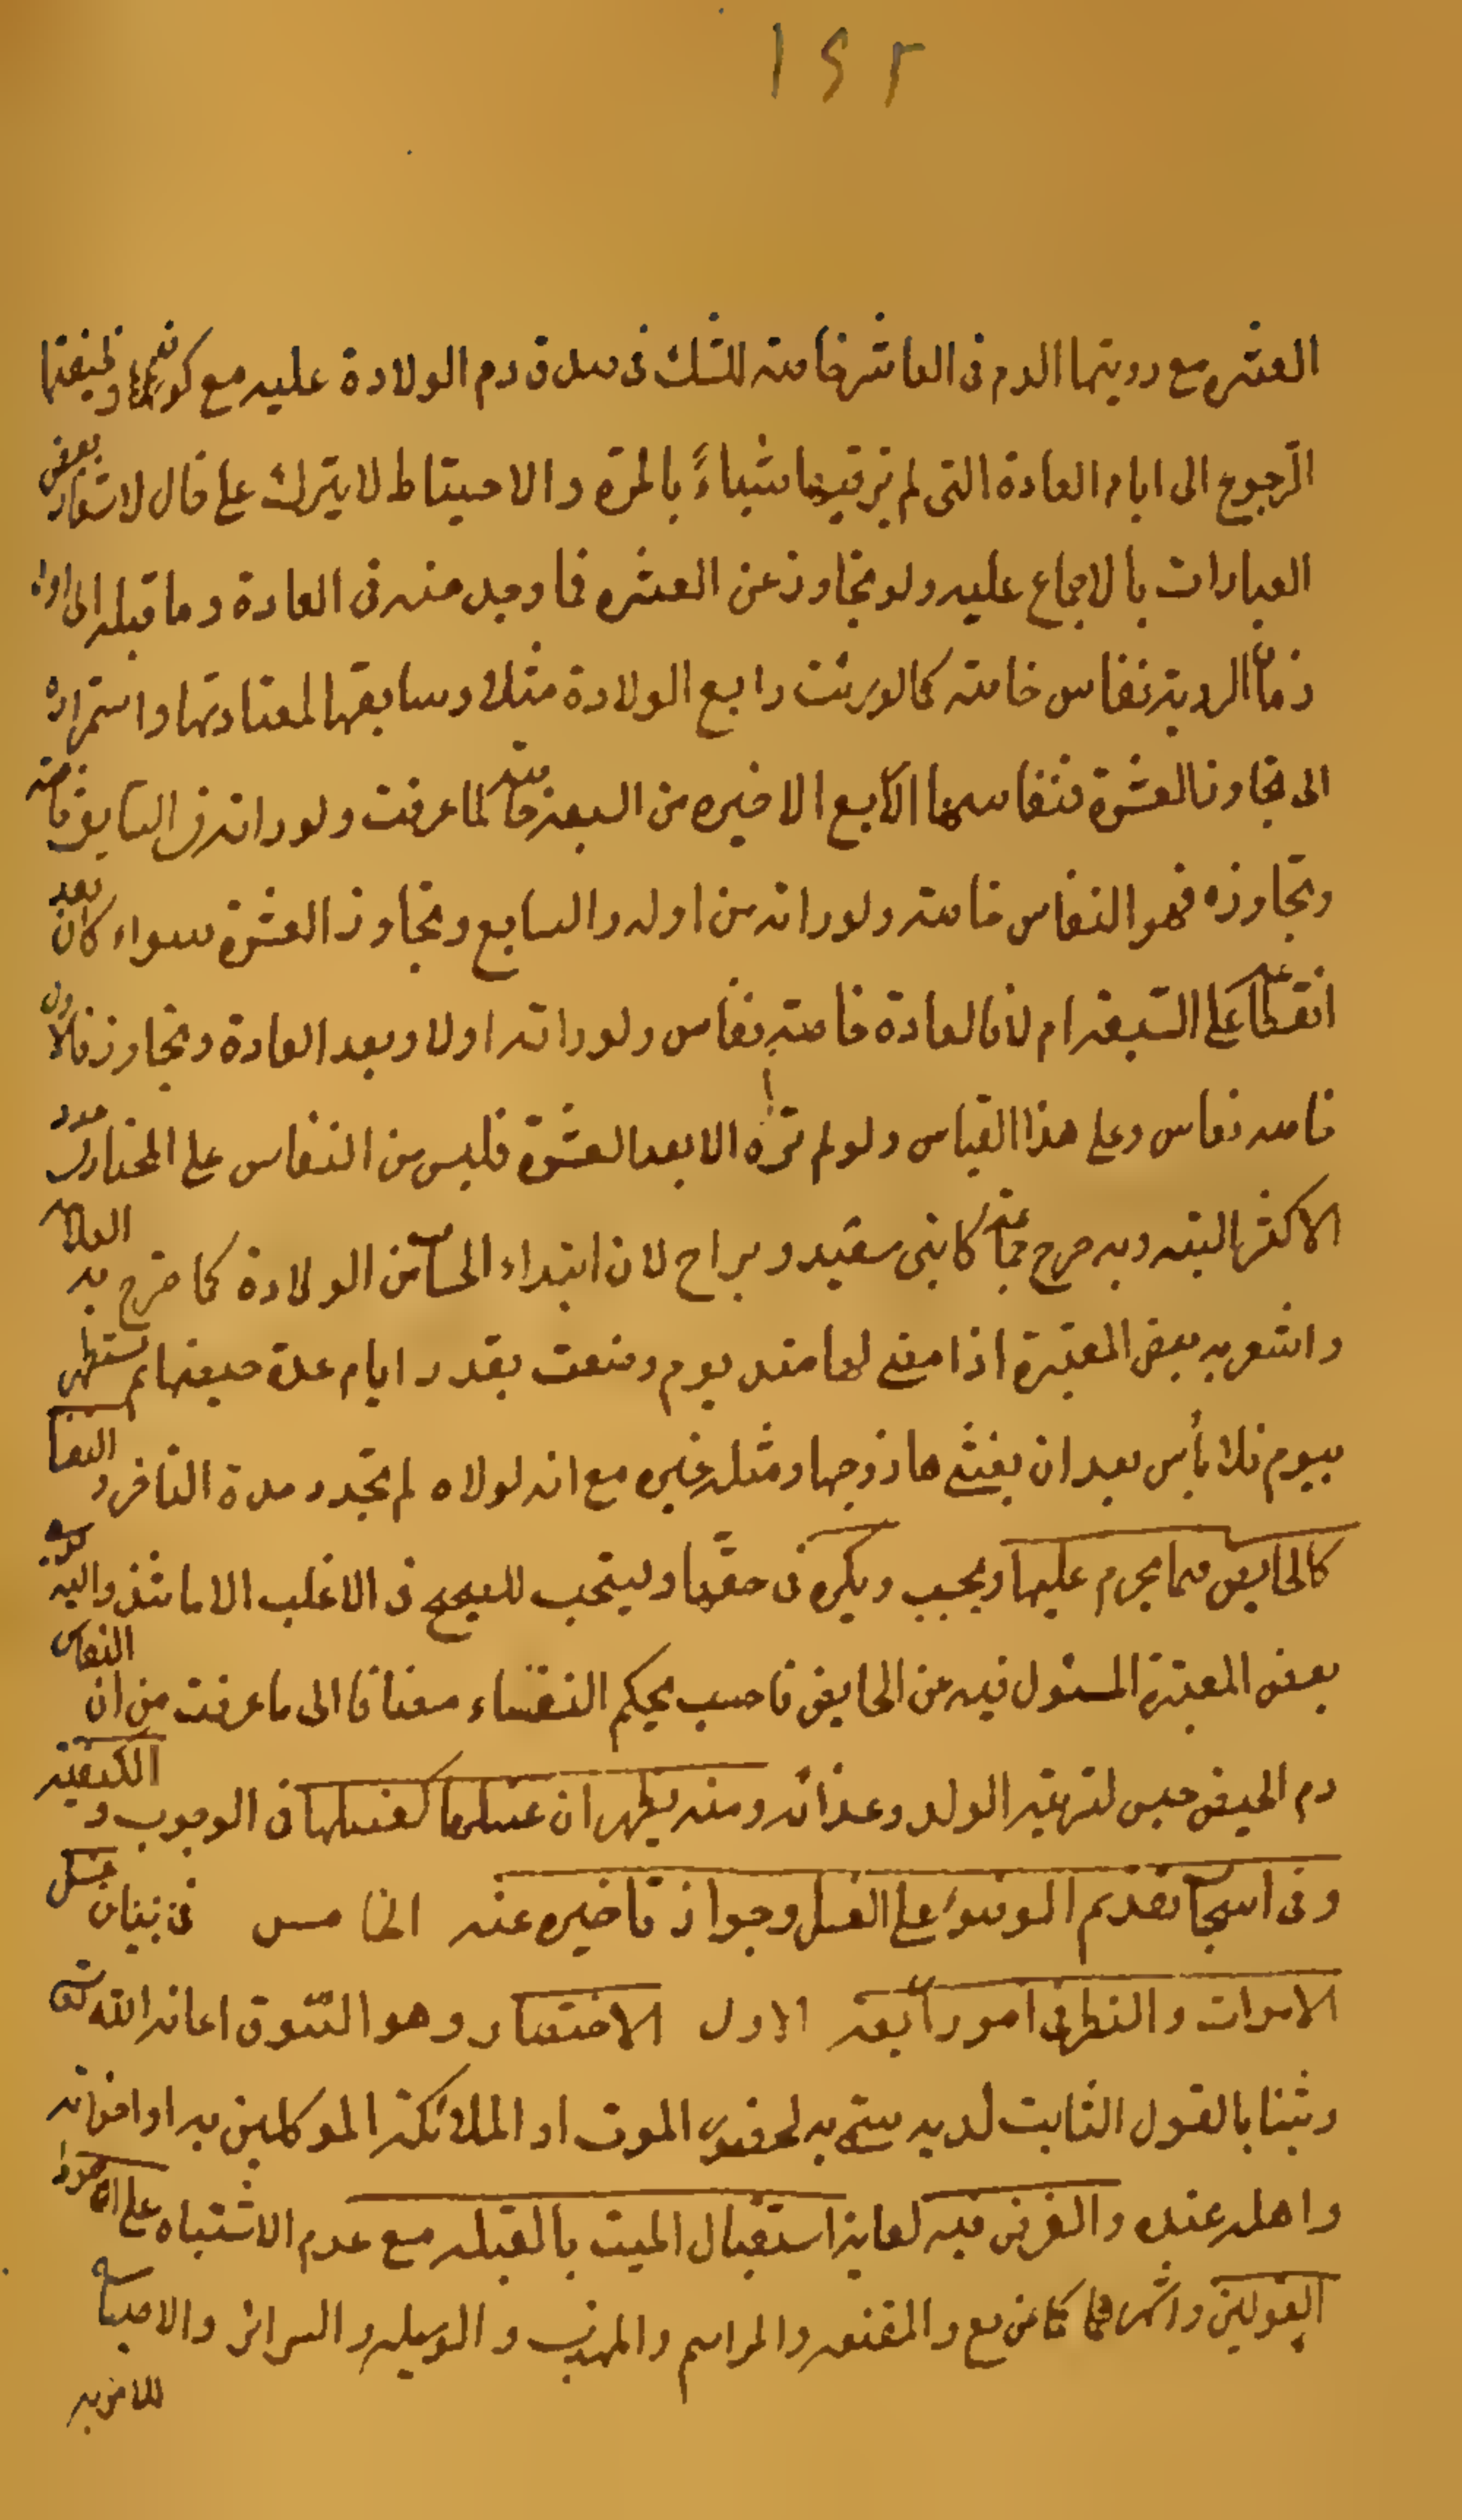 ١٤٢
العشرة مع رويتها الدم فى العاشر خاصة للشك فى صدق دم الولادة عليه مع كونها وظيفتها
الرجوع الى ايام العادة التى لم تر فيها شيئاً بالمرة والاحتياط لا يترك على حال لاشعار بعض
العبارات بالاجماع عليه ولو تجاوز عن العشره فما وجد منه فى العادة وما قبله الى اول
زمان الروية نفاس خاصة كما لو رئت رابع الولادة مثلا وسابعها لمعتادتها واستمراره
الى تجاوز العشرة فنفاسها الاربع الاخيره من السبعة خاصة لما عرفت ولو راته فى السابع خاصة
وتجاوزه فهو النفاس خاصة ولو راته من اوله والسابع وتجاوز العشرة سواء كان بعد
انقطاعه على السبعة ام لا فالعادة خاصة نفاس ولو راته اولا وبعد العادة وتجاوز فالاول
خاصه نفاس وعلى هذا القياس ولو لم تره الا بعد العشرة فليس من النفاس على المختار
الاكثر البته وبه صرح جماعة كابنى سعيد وبراج لان ابتداء الحساب من الولادة كما صرح به العلامه
واشعر به بعض المعتبرة اذا مضى لها منذ يوم وضعت بقدر ايام عدة حيضها ثم تستظهر
بيوم فلا بأس بعد ان يغشاها زوجها ومثله غيره مع انه لولاه لم تتجدد مدة التاخر والنفساء
كالحايض فيما يحرم عليها ويجب ويكره فى حقها ويستحب للصحيح فى الاغلب الا ما شذ واليه يومى
بعض المعتبرة المسئول فيه عن الحايض فاجيب بحكم النفساء مضافا الى ما عرفت من ان النفاس
دم الحيض حبس لتربية الولد وغذائه ومنه يظهر ان غسلها كغسلها فى الوجوب والكيفية
وفى استحباب تقديم الوضوء على الغسل وجواز تاخيره عنه الخامس فى بيان غسل
الاموات والنظر فى امور اربعة الاول الاحتضار وهو السوق اعاننا الله تعالى
وثبتنا بالقول الثابت لديه سمى به لحضور الموت او الملائكة الموكلين به او اخوانه
واهله عنده والفرض فيه كفاية استقبال الميت بالقبله مع عدم الاشتباه على احوط
القولين واشهرهما كما عن يع والمقنعه والمراسم والمهذب والوسيله والسرائر والاصباح
للامر به